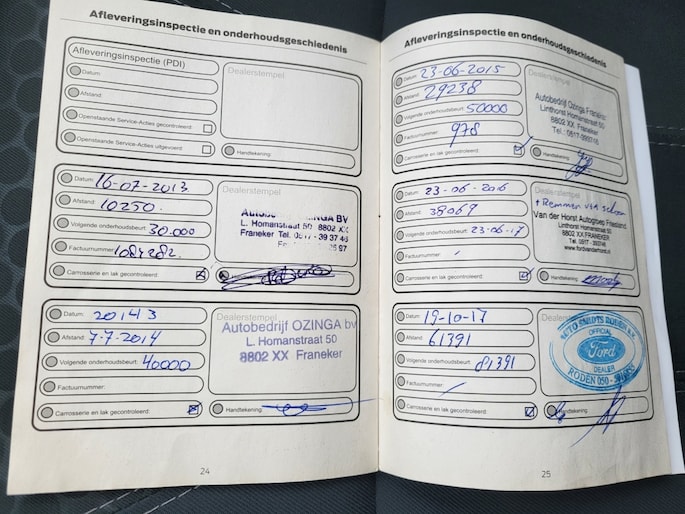 Afleveringsinspectie en onderhoudsgeschiedenis
Afleveringsinspectie (PDI)
Datum:
Afstand:
Openstaande Service-Acties gecontroleerd:
Openstaande Service-Acties uitgevoerd:
Dealerstempel
Handtekening:
Datum: 16-07-2013
Afstand: 10250.
Volgende onderhoudsbeurt: 30.000
Factuurnummer: 1084282
Carrosserie en lak gecontroleerd:
Dealerstempel
Autobedrijf OZINGA BV
L. Homanstraat 50
Franeker Tel. 0517 - 39 37 46
Datum: 20143
Afstand: 7-7-2014
Volgende onderhoudsbeurt: 40000
Factuurnummer:
Carrosserie en lak gecontroleerd:
Dealerstempel
Autobedrijf OZINGA bv
L. Homanstraat 50
8802 XX Franeker
Handtekening:
24
Afleveringsinspectie en onderhoudsgeschiedenis
Datum: 23-06-2015
Afstand: 29238
Volgende onderhoudsbeurt: 50000
Factuurnummer: 978
Carrosserie en lak gecontroleerd:
Dealerstempel
Autobedrijf Ozinga Franeker
Linthorst Homanstraat 50
8802 XX Franeker
Handtekening:
Datum: 23-06-2016
Afstand: 38069
Volgende onderhoudsbeurt: 23-06-17
Factuurnummer:
Carrosserie en lak gecontroleerd:
Dealerstempel
+ Remmen
Van der Horst Autogroep Friesland
Linthorst Homanstraat 50
8802 XX FRANEKER
Tel.: 0517 - 393746
www.fordvanderhorst.nl
Handtekening:
Datum: 19-10-17
Afstand: 61391
Volgende onderhoudsbeurt: 81391
Factuurnummer:
Carrosserie en lak gecontroleerd:
Dealerstempel
OFFICIAL
Ford
DEALER
RODEN 050 -
Handtekening:
25